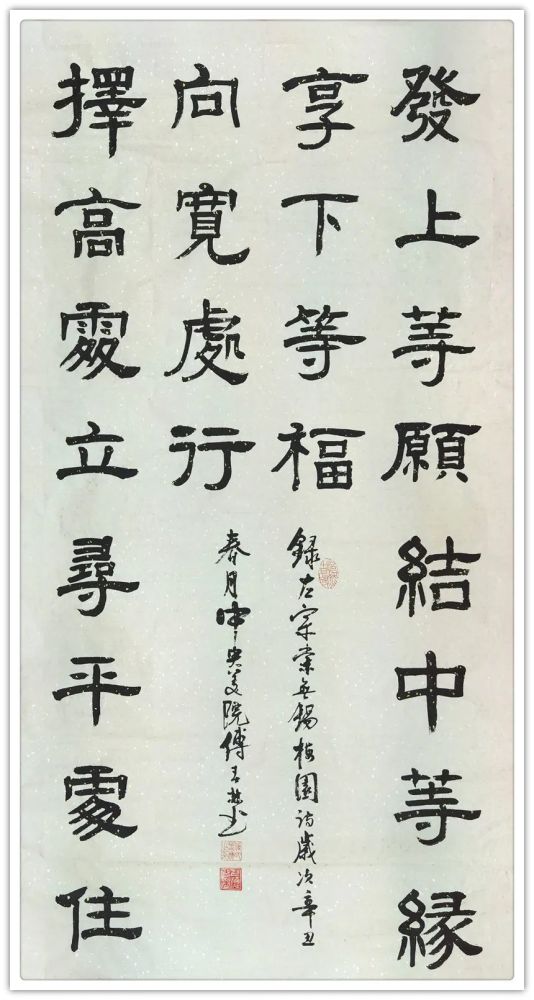 發上等願結中等緣
享下等福
擇高處立尋平處住
向寬處行
録左宗棠無錫梅園詩歲次辛丑
春月中央美院傅